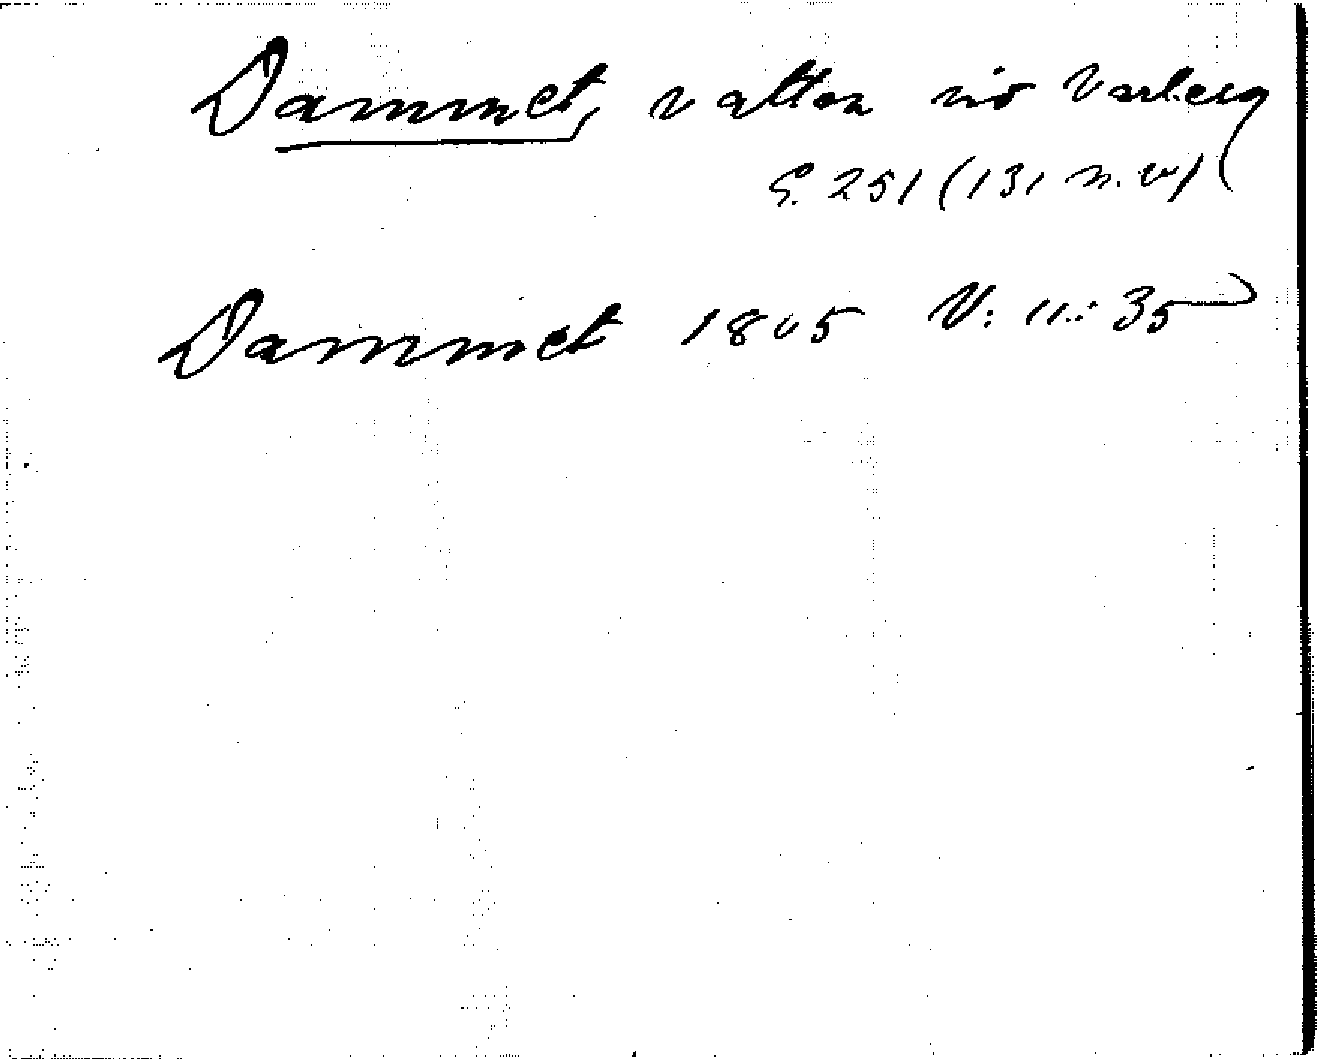 Dammet, vatten vid Varberg
S. 251 (131 n.w)
Dammet 1805 V: 11: 35